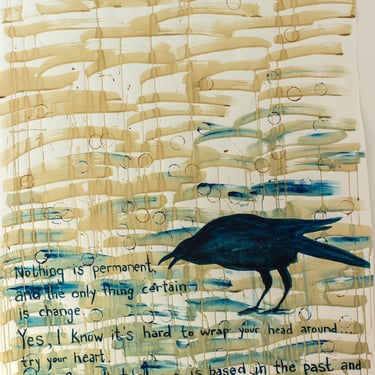 Nothing is permanent,
and the only thing certain
is change.
Yes, I know it's hard to wrap your head around...
try your heart.
is based in the past and